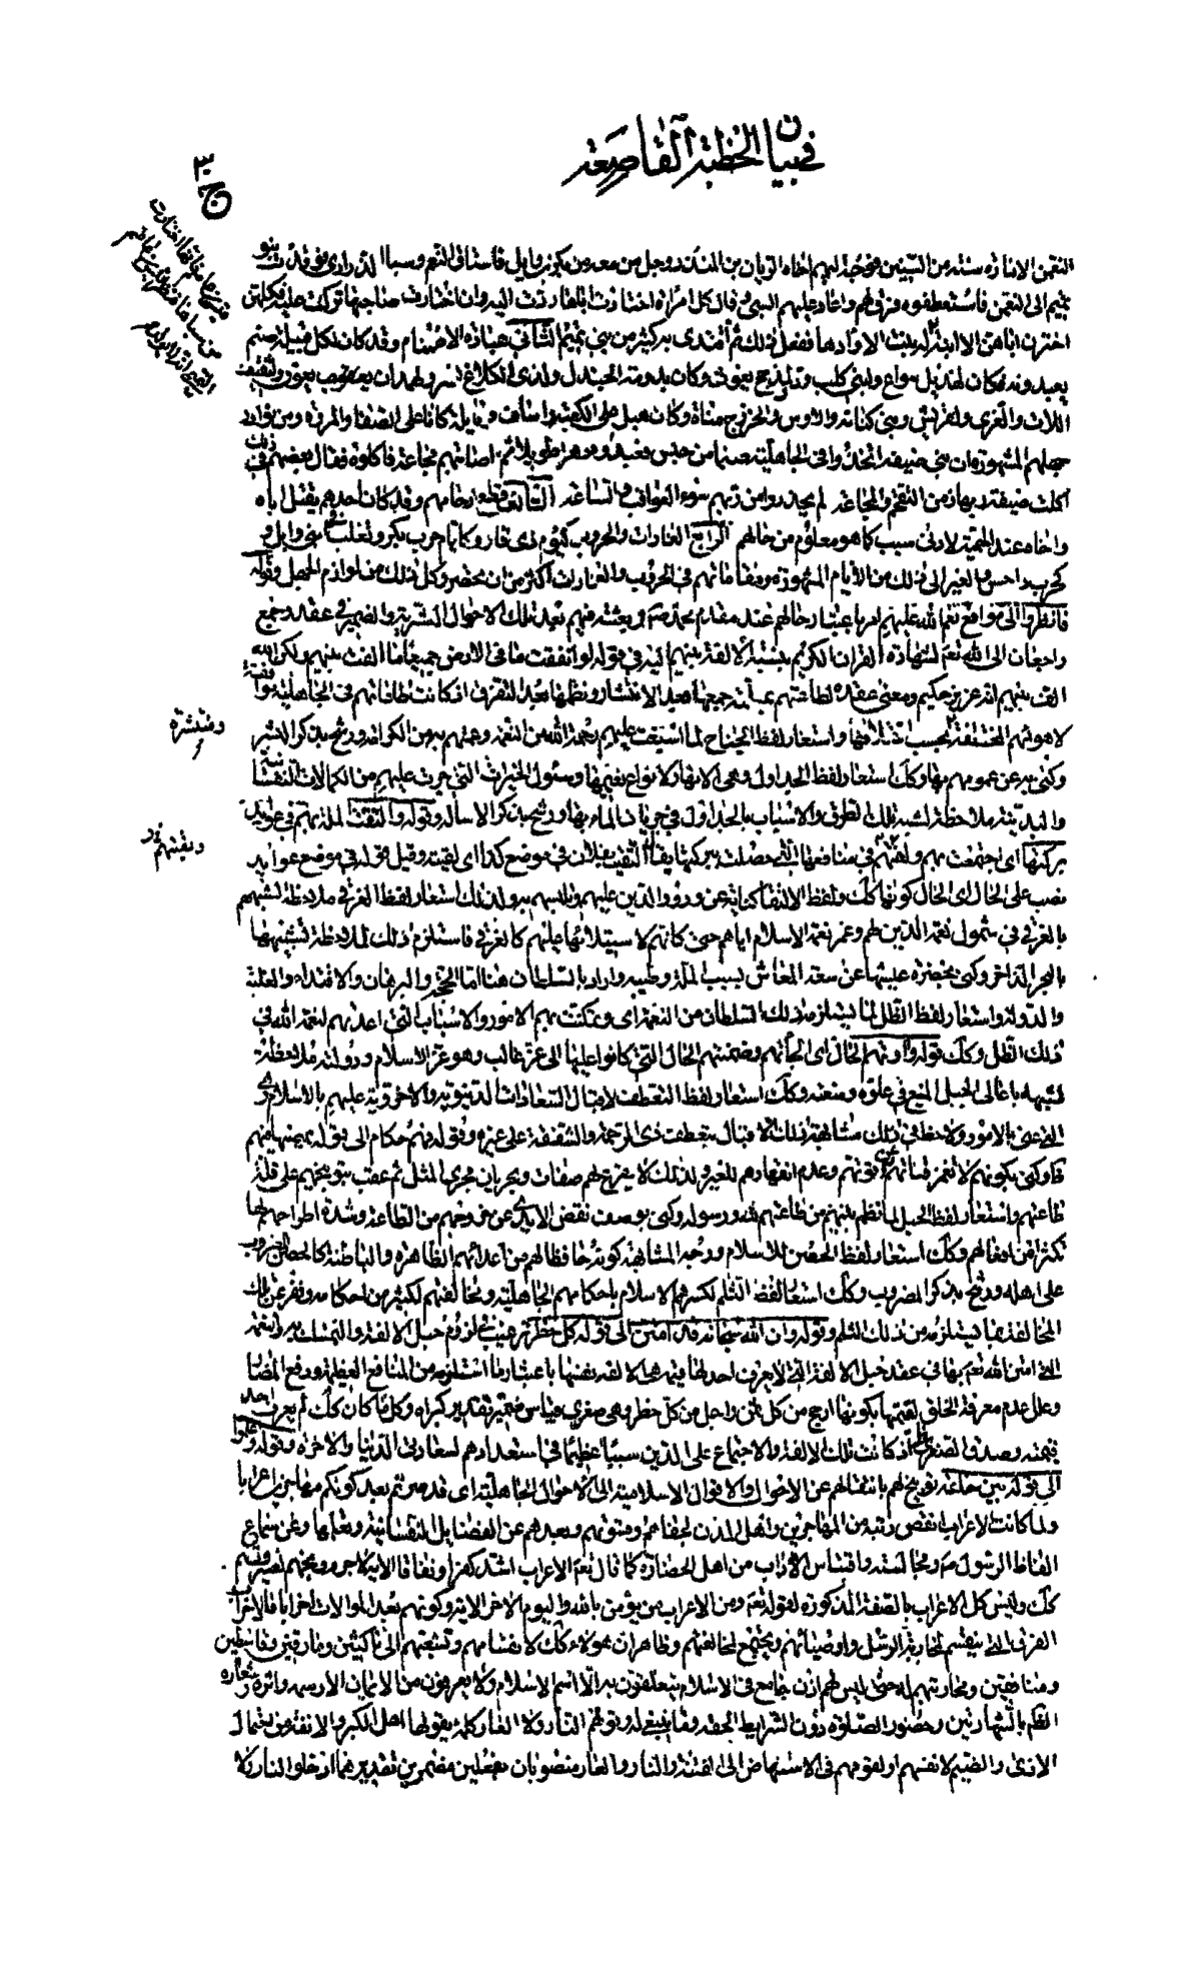 في بيان الخطبة القاصعة
النعمن الاتاوة سنة من السنين فوجه اليهم اخاه الريان بن المنذر وجل من معه من بكر بن وايل فاستاق النعم وسبا الذراري فوفدت بنو
تميم الى النعمن فاستعطفوه فرق لهم واعاد عليهم السبي وقال كل امرأة اختارت اباها ردت اليه وان اختارت صاحبها تركت عليه فكلهن
اخترن اباهن الا ابنة
يعبدونه فكان لهذيل سواع ولبني كلب ود ولمذحج يغوث وكان بدومة الجندل ولذي الكلاع نسر ولهمدان يعوق ولثقيف
اللات والعزى ولقريش وبني كنانة والاوس والخزرج مناة وكان هبل على الكعبة واساف ونايلة كانا على الصفا والمروة ومن نوادر
جهلهم المشهورة ان بني حنيفة اتخذوا في الجاهلية صنما من حيس فعبدوه دهرا طويلا ثم اصابتهم مجاعة فاكلوه فقال بعضهم في ذلك
اكلت حنيفة ربها زمن التقحم والمجاعة لم يحذروا من ربهم سوء العواقب والتباعة الثالث قطع ارحامهم وقد كان احدهم يقتل اباه
واخاه عند الحمية لادنى سبب كما هو معلوم من حالهم الرابع الغارات والحروب كيوم ذي قار وكايام حرب بكر وتغلب في بني وايل و
كحرب داحس والغير الى ذلك من الايام المشهورة ومقاماتهم في الحروب والغارات اكثر من ان تحصر وكل ذلك من لوازم الجهل وقوله
فانظروا الى مواقع نعم الله عليهم امر باعتبار حالهم عند مقدم محمد ص وبعثه فيهم بعد تلك الاحوال الشريرة والضمير في عقد وجمع
راجعان الى الله تعم لشهادة القران الكريم بنسبة الالفة بينهم اليه في قوله لو انفقت ما في الارض جميعا ما الفت بينهم ولكن الله
الف بينهم انه عزيز حكيم ومعنى عقده لطاعتهم بملته جمعها بعد الانتشار ونظمها بعد التفرق اذ كانت طاعاتهم في الجاهلية موافقة
لاهوائهم المختلفة واستعار لفظ الجناح لما اسبغت عليهم من النعمة وعمتهم به من الكرامة ورشح بذكر النشر
وكنى به عن عمومهم بها وكك استعار لفظ الجداول وهي الانهار لانواع نعيمها وسيول الخيرات التي جرت عليهم من الكمالات النفسانية
والبدنية ملاحظة لشبه تلك الطرق والاسباب بالجداول في جريان الماء بها ورشح بذكر الاسالة وقوله والتفت الملة بهم في عوايد
بركتها اى اجتمعت بهم ولقيتهم في منافعها التي حصلت ببركتها يقال التقيت بفلان في موضع كذا اى لقيته وقيل قوله في موضع عوايد
نصب على الحال اى الحال كونها كك ولفظ الالتقا كناية عن ورود الدين عليهم وتلبسهم به ولذلك استعار لفظ الغرقى ملاحظة لشبههم
بالغرقى في شمول نعمة الدين لهم وغمر نعمة الاسلام اياهم حتى كانهم لاستيلائها عليهم كالغرقى فاستلزم ذلك ملاحظة تشبيهها
بالبحر الذاخر وكنى بخضرة عيشها عن سعة المعاش بسبب الملة وطيبه واراد بالسلطان هنا اما الحجة والبرهان والاقتداء والغلبة
والدولة واستعار لفظ الظل لما يستلزمه ذلك السلطان من النعمة اى وتمكنت بهم الامور والاسباب التي اعدتهم لنعمة الله في
ذلك الظل وكك قوله وآوتهم الحال اى الجأتهم وضمتهم الحال التي كانوا عليها الى عز غالب وهو عز الاسلام ودولته ملاحظة
لشبهه باعالي الجبل المنيع في علوه ومنعته وكك استعار لفظ التعطف لاقبال السعادات الدنيوية والاخروية عليهم بالاسلام
التي عنى بالامور ولاحظ في ذلك مشابهة ذلك الاقبال بتعطف ذي الرحمة والشفقة على غيره وقوله فهم حكام الى قوله يمضيها فيهم
فا وكنى بكونهم لا تغمز قناتهم عن قوتهم وعدم انقهارهم للغير ولذلك لا يقرع لهم صفات ويجريان مجرى المثل ثم عقب بتوبيخهم على قلة
طاعتهم واستعار لفظ الحبل لما نظم بينهم من طاعتهم لله ورسوله وكنى بوصف نفض الايدي عن خروجهم من الطاعة وشدة اطراحهم لها
تكثرا من افعالهم وكك استعار لفظ الحصن للاسلام ووجه المشابهة كونه حافظا لهم من اعدائهم الظاهرة والباطنة كالحصن المضروب
على اهله ورشح بذكر المضروب وكك استعار لفظ الثلم لكسرهم الاسلام باحكامهم الجاهلية ومخالفتهم لكثير من احكامه
المخالفة بما يستلزمه من ذلك الثلم وقوله وان الله سبحانه قد امتن الى قوله كل خطر ترغيب في لزوم حبل الالفة والتمسك به
التي امتن الله تعم بها في عقد حبل الالفة التي لا يعرف احد لها قيمة هي الالفة نفسها باعتبار ما استلزمه من المنافع العظيمة ودفع المضار
وعلل عدم معرفة الخلق لقيمتها بكونها ارجح من كل ثمن واجل من كل خطر وهي صغرى قياس ضمير تقدير كبراه وكل ما كان كك لم يعرف احد
قيمته وصدق الصغرى ظاهر اذ كانت تلك الالفة والاجتماع على الدين سببا عظيما في استعدادهم لسعادتي الدنيا والاخرة وقوله واعلموا
الى قوله بين جماعة توبيخ لهم بانتقالهم عن الاحوال والاقوال الاسلامية الى الاحوال الجاهلية اى قد صرتم بعد كونكم مهاجرين اعرابا
ولما كانت الاعراب انقص رتبة من المهاجرين واهل المدن لجفاهم وقسوتهم وبعدهم عن الفضايل النفسانية وتعلمها وعن سماع
الفاظ الرسول ص ومجالسته واقتباس الاداب من اهل الحضارة كما قال تعم الاعراب اشد كفرا ونفاقا الاية لاجرم وبخهم لصيرورتهم
كك وليس كل الاعراب بالصفة المذكورة لقوله تعم ومن الاعراب من يؤمن بالله واليوم الاخر الاية وكونهم بعد الموالات احزابا فالاحزاب
الفرق التي ينقسم لمحاربة الرسل واوصيائهم ويجتمع لمخالفتهم وظاهر ان هؤلاء كك لانقسامهم وتشعبهم الى ناكثين ومارقين وقاسطين
ومنافقين ومحاربتهم له حتى ليس لهم اذن بجامع في الاسلام يتعلقون به الا اسم الاسلام ولا يعرفون من الايمان الا رسمه واثره وشعاره
الظاهر بالشهادتين وحضور الصلوة دون الشرايط الحقه وما ينبغي له وقولهم النار ولا العار كلمة يقولها اهل الكبر والانفة من احتمال
الاذى والضيم لانفسهم او لقومهم في الاستنهاض الى الفتنة والنار والعار منصوبان بفعلين مضمرين تقديرهما ادخلوا النار ولا
ومنتشرة
ولقيتهم خ د